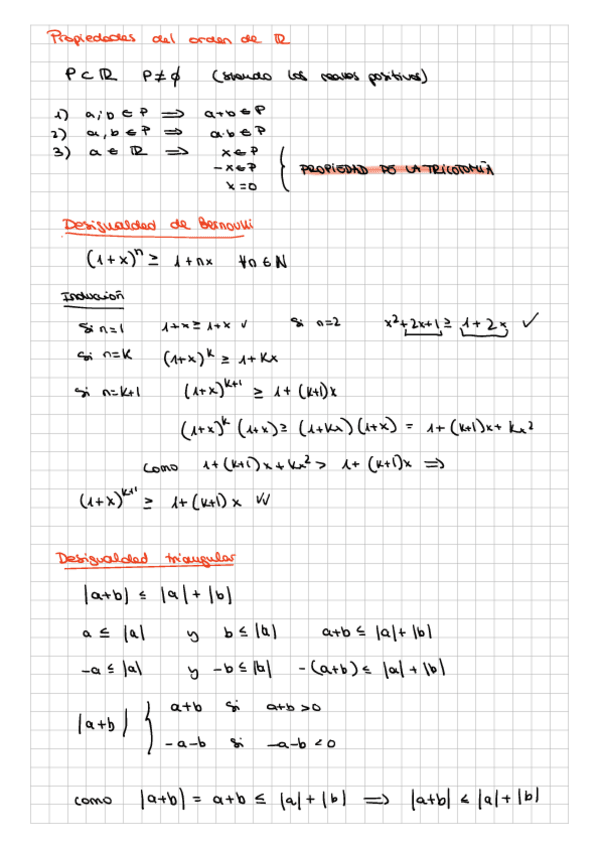 Propiedades del orden de ℝ
P ⊂ ℝ P ≠ ∅ (siendo los reales positivos)
1) a, b ∈ P ⟹ a+b ∈ P
2) a, b ∈ P ⟹ a·b ∈ P
3) a ∈ ℝ ⟹ x ∈ P
-x ∈ P PROPIEDAD DE LA TRICOTOMÍA
x = 0
Desigualdad de Bernoulli
(1+x)^n ≥ 1+nx ∀n ∈ N
Inducción
Si n=1 1+x ≥ 1+x ✓ Si n=2 x²+2x+1 ≥ 1+2x ✓
Si n=K (1+x)^k ≥ 1+Kx
Si n=K+1 (1+x)^{k+1} ≥ 1+(k+1)x
(1+x)^k (1+x) ≥ (1+kx)(1+x) = 1+(k+1)x+kx²
como 1+(k+1)x+kx² > 1+(k+1)x ⟹
(1+x)^{k+1} ≥ 1+(k+1)x ✓✓
Desigualdad triangular
|a+b| ≤ |a|+|b|
a ≤ |a| y b ≤ |b| a+b ≤ |a|+|b|
-a ≤ |a| y -b ≤ |b| -(a+b) ≤ |a|+|b|
a+b si a+b > 0
|a+b| {
-a-b si -a-b < 0
como |a+b| = a+b ≤ |a|+|b| ⟹ |a+b| ≤ |a|+|b|